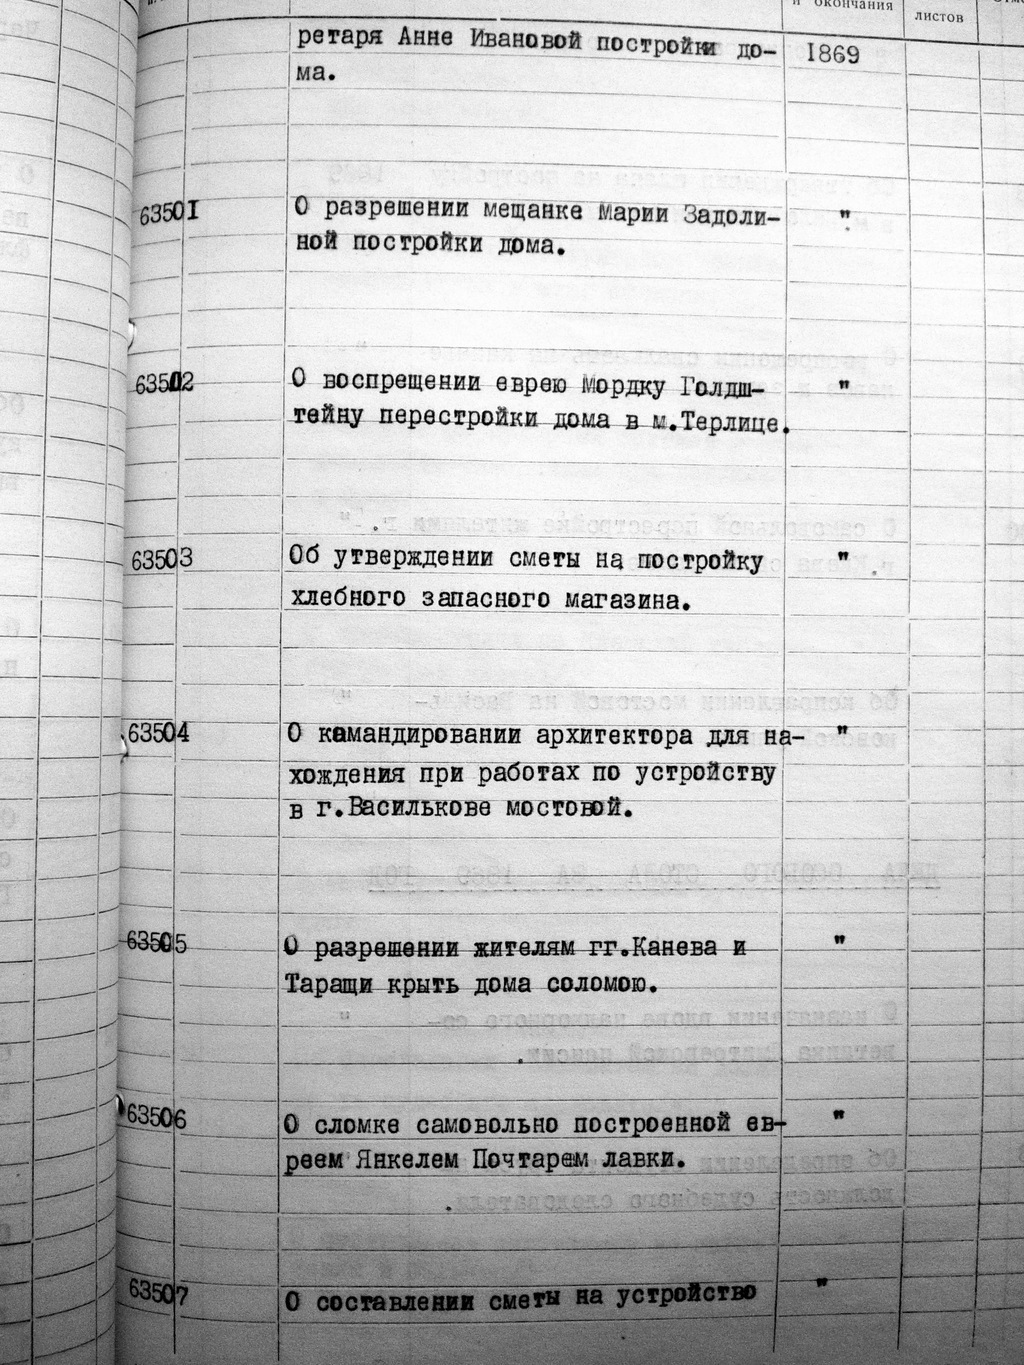 и окончания
листов
ретаря Анне Ивановой постройки до- 1869
ма.
63501 О разрешении мещанке Марии Задоли- "
ной постройки дома.
63502 О воспрещении еврею Мордку Голдш- "
тейну перестройки дома в м.Терлице.
63503 Об утверждении сметы на постройку "
хлебного запасного магазина.
63504 О камандировании архитектора для на- "
хождения при работах по устройству
в г.Василькове мостовой.
63505 О разрешении жителям гг.Канева и "
Таращи крыть дома соломою.
63506 О сломке самовольно построенной ев- "
реем Янкелем Почтарем лавки.
63507 О составлении сметы на устройство "